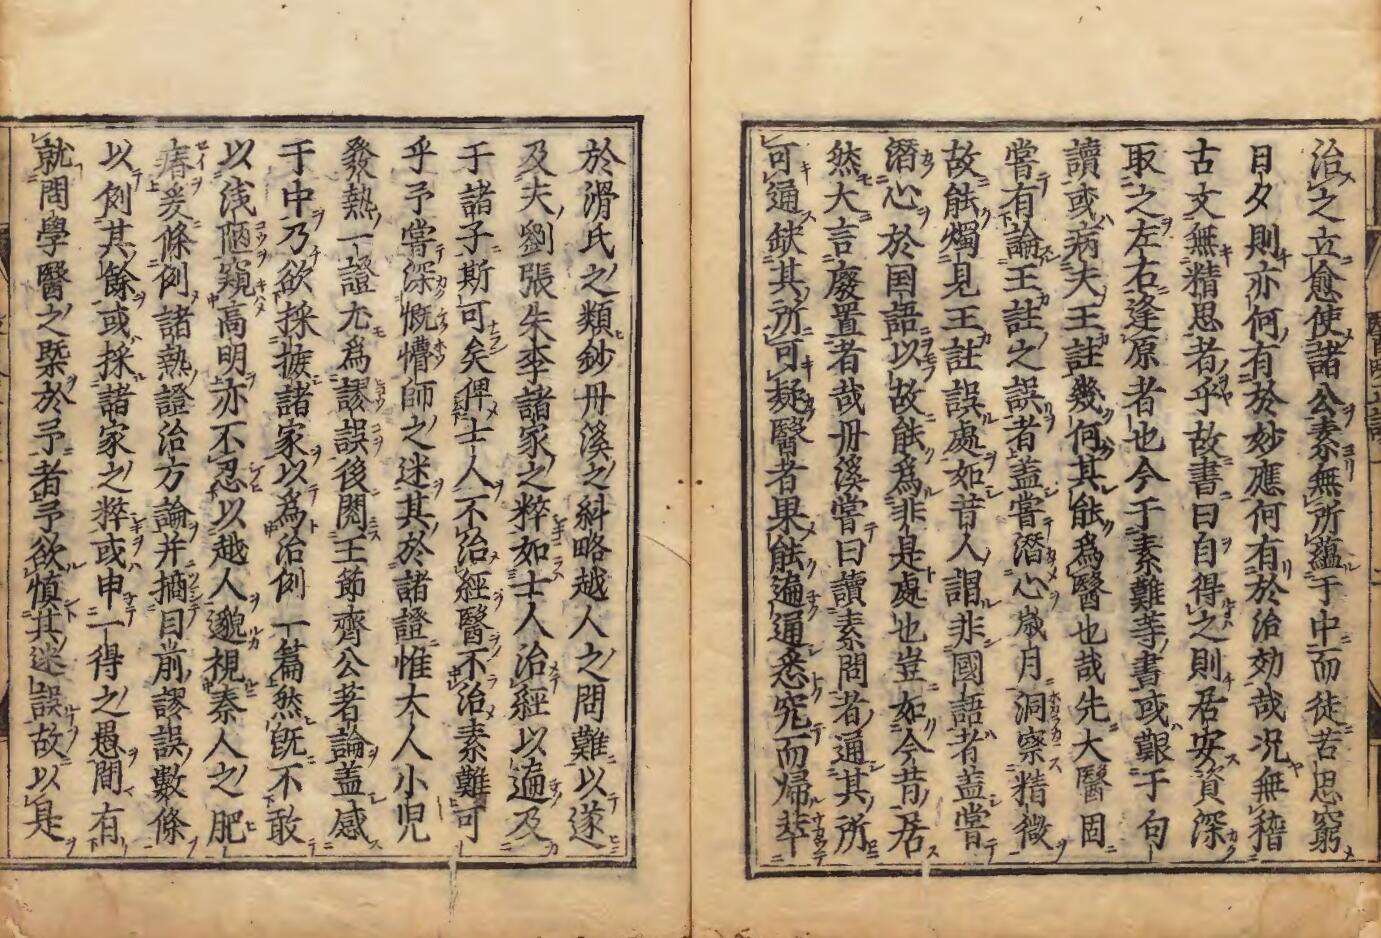 治之立愈使諸公素無所蘊于中而徒苦思窮
日夕則亦何有於妙應何有於治効哉況無稽
古文無精思者乎故書曰自得之則居安資深
取之左右逢原者也今于素難等書或艱于句
讀或病夫王註幾何其能為醫也哉先大醫固
嘗有論王註之誤者盖嘗潛心歳月洞察精微
故能燭見王註誤處如昔人謂非國語者盖嘗
潛心於国語以故能為非是處也豈如今昔居
然大言廢置者哉丹溪嘗曰讀素問者通其所
可通缺其所可疑醫者果能遍通悉究而帰萃
於滑氏之類鈔丹溪之糾略越人之問難以遂
及夫劉張朱李諸家之粹如士人治經以遍及
于諸子斯可矣俾士人不治經醫不治素難可
乎予嘗深慨懵師之迷其於諸證惟大人小児
發熱一證尤為謬誤後閱王節齊公著論盖感
于中乃欲採摭諸家以為治例一篇然既不敢
以浅陋窺高明亦不忍以越人邈視秦人之肥
瘠爰條例諸熱證治方論并摘目前謬誤數條
以例其餘或採諸家之粹或申一得之愚間有
就問學醫之槩於予者予欲慎其迷誤故以是